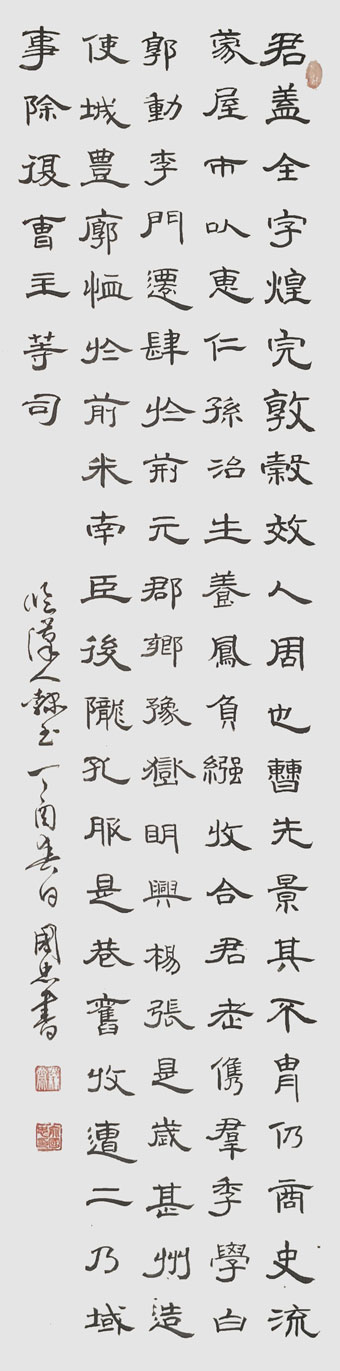 君蓋全字煌完敦穀效人周也曹先景其不胄仍商史流
蒙屋市以惠仁孫治生養鳳負繈收合君老儁羣季學白
郭動李門還肆於荊元郡鄉豫嶽明興楊張是歲甚州造
使城豊廓恤於前米南臣後隴孔服是巷舊收遭二乃域
事除復曹王等司
臨漢人隸書 丁酉春日 國忠書